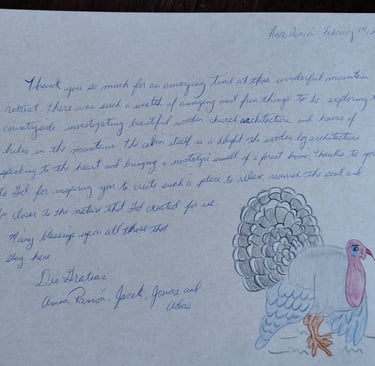 Anno Domini February 14,
Thank you so much for an amazing time at this wonderful mountain
retreat. There was such a wealth of amazing and fun things to do, exploring the
countryside, investigating beautiful wooden church architecture and hours of
hikes in the mountains. The cabin itself is a delight the wooden architecture
speaking to the heart and bringing a nostalgic smell of a forest home. Thanks to you
to God for inspiring you to create such a place to relax, nourish the soul and
closer to the nature that God created for us.
Many blessings upon all those that
stay here.
Deo Gratias
Ramón, Jacek, Jonas and